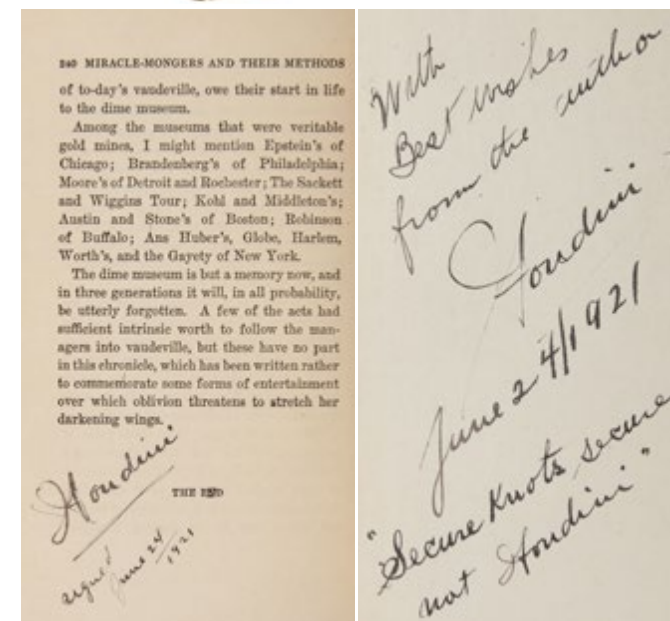 240 MIRACLE-MONGERS AND THEIR METHODS
of to-day's vaudeville, owe their start in life
to the dime museum.
Among the museums that were veritable
gold mines, I might mention Epstein's of
Chicago; Brandenberg's of Philadelphia;
Moore's of Detroit and Rochester; The Sackett
and Wiggins Tour; Kohl and Middleton's;
Austin and Stone's of Boston; Robinson
of Buffalo; Ans Huber's, Globe, Harlem,
Worth's, and the Gayety of New York.
The dime museum is but a memory now, and
in three generations it will, in all probability,
be utterly forgotten. A few of the acts had
sufficient intrinsic worth to follow the man-
agers into vaudeville, but these have no part
in this chronicle, which has been written rather
to commemorate some forms of entertainment
over which oblivion threatens to stretch her
darkening wings.
Houdini
THE END
signed
June 24
1921
With
Best wishes
from the author
Houdini
June 24/1921
"Secure Knots secure
not Houdini"